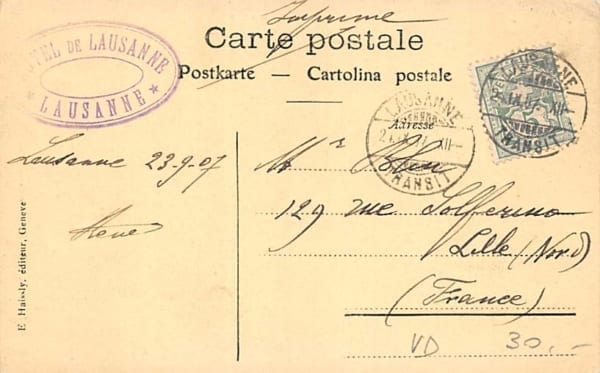 Imprimé
Carte postale
Postkarte — Cartolina postale
HOTEL DE LAUSANNE
* LAUSANNE *
LAUSANNE
TRANSIT
LAUSANNE
IX.07. XII
TRANSIT
Adresse
Lausanne 23-9-07
Mr
129 rue Solferino
Lille (Nord)
(France)
E. Haissly, éditeur, Genève
VD 30.-